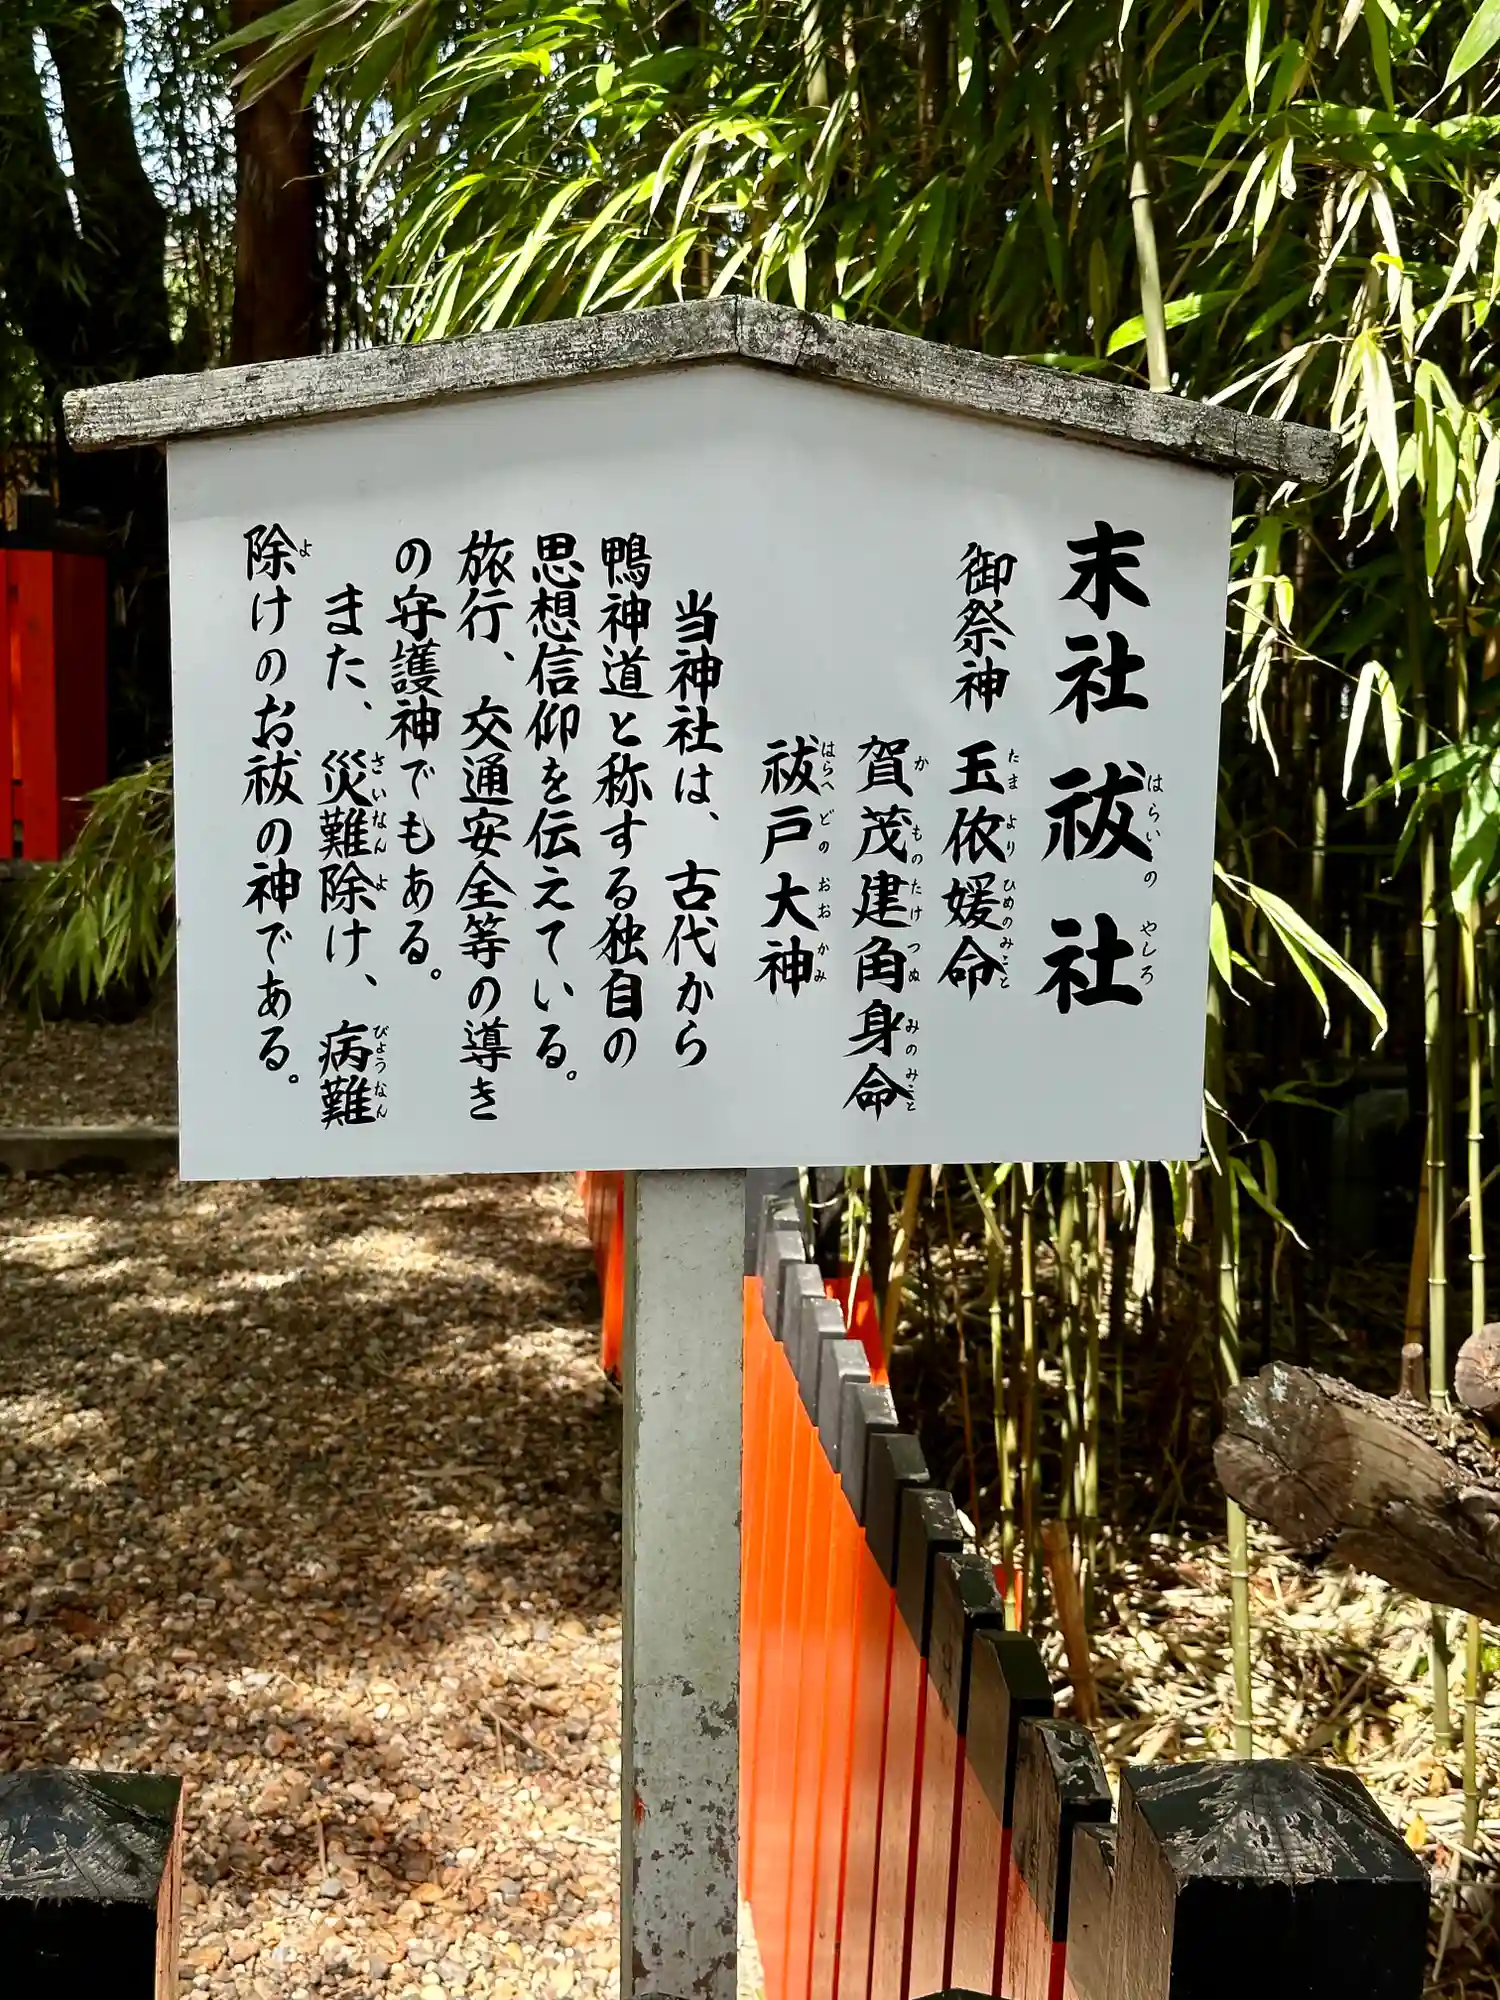 末社 祓社
御祭神 玉依媛命
賀茂建角身命
祓戸大神
当神社は、古代から
鴨神道と称する独自の
思想信仰を伝えている。
旅行、交通安全等の導き
の守護神でもある。
また、災難除け、病難
除けのお祓の神である。
はらいの やしろ
たま より ひめのみこと
か ものたけ つぬ みのみこと
はらへ どの おお かみ
さいなん よ びょうなん
よ